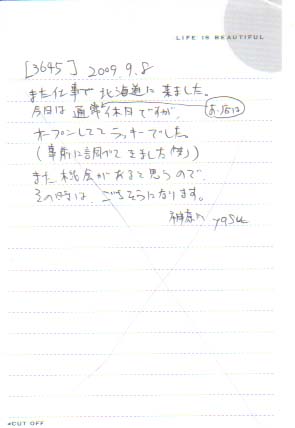 LIFE IS BEAUTIFUL
[3645] 2009.9.8
また仕事で北海道に来ました。
今日は通常休日ですが、お店は
オープンしててラッキーでした。
(事前に調べてきました(笑))
また機会があると思うので
その時は、ごちそうになります。
神奈川 yasu
CUT OFF